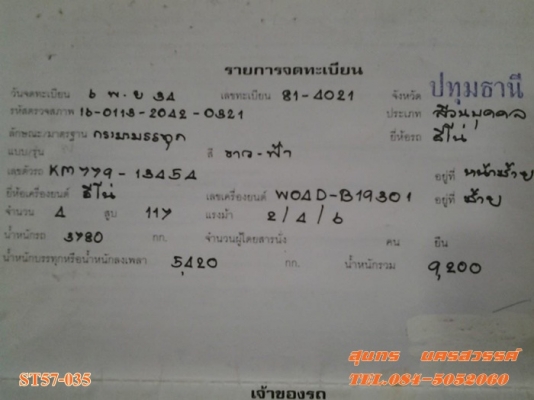 รายการจดทะเบียน
วันจดทะเบียน 6 พ.ย 34 เลขทะเบียน 81-4021 จังหวัด ปทุมธานี
รหัสตรวจสภาพ 16-0113-2042-0321 ประเภท ส่วนบุคคล
ลักษณะ/มาตรฐาน กระบะบรรทุก ยี่ห้อรถ ฮีโน่
แบบ/รุ่น สี ขาว-ฟ้า
เลขตัวรถ KM779-13454 อยู่ที่ หน้าซ้าย
ยี่ห้อเครื่องยนต์ ฮีโน่ เลขเครื่องยนต์ W04D-B19301 อยู่ที่ ซ้าย
จำนวน 4 สูบ 117 แรงม้า 2/4/6
น้ำหนักรถ 3780 กก. จำนวนผู้โดยสารนั่ง คน ยืน
น้ำหนักบรรทุกหรือน้ำหนักลงเพลา 5,420 กก. น้ำหนักรวม 9,200
สุนทร นครสวรรค์
ST57-035 TEL.084-5052060
เจ้าของรถ